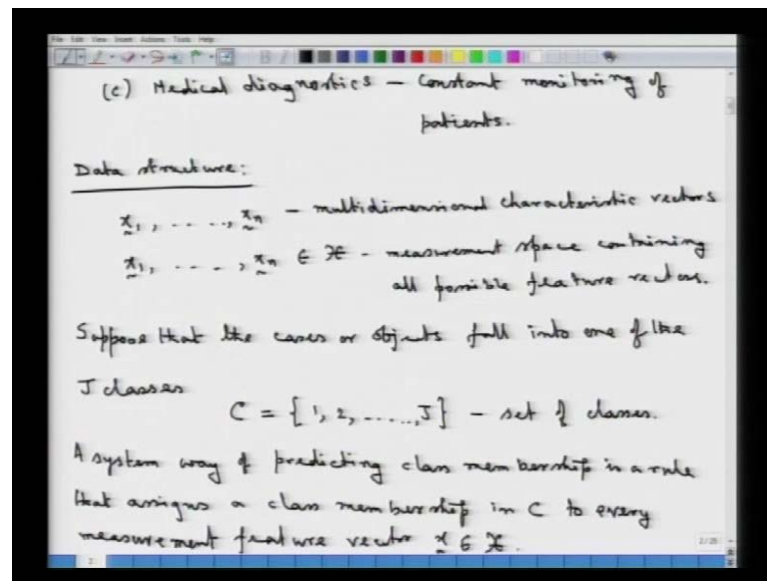 File Edit View Insert Actions Tools Help
(c) Medical diagnostics — Constant monitoring of
patients.
Data structure:
x1, ....., xn — multidimensional characteristic vectors
x1, ...., xn ∈ 𝒳 - measurement space containing
all possible feature vectors.
Suppose that the cases or objects fall into one of the
J classes
C = {1, 2, ....., J} — set of classes.
A system way of predicting class membership is a rule
that assigns a class membership in C to every
measurement feature vector x ∈ 𝒳.
2/25
2